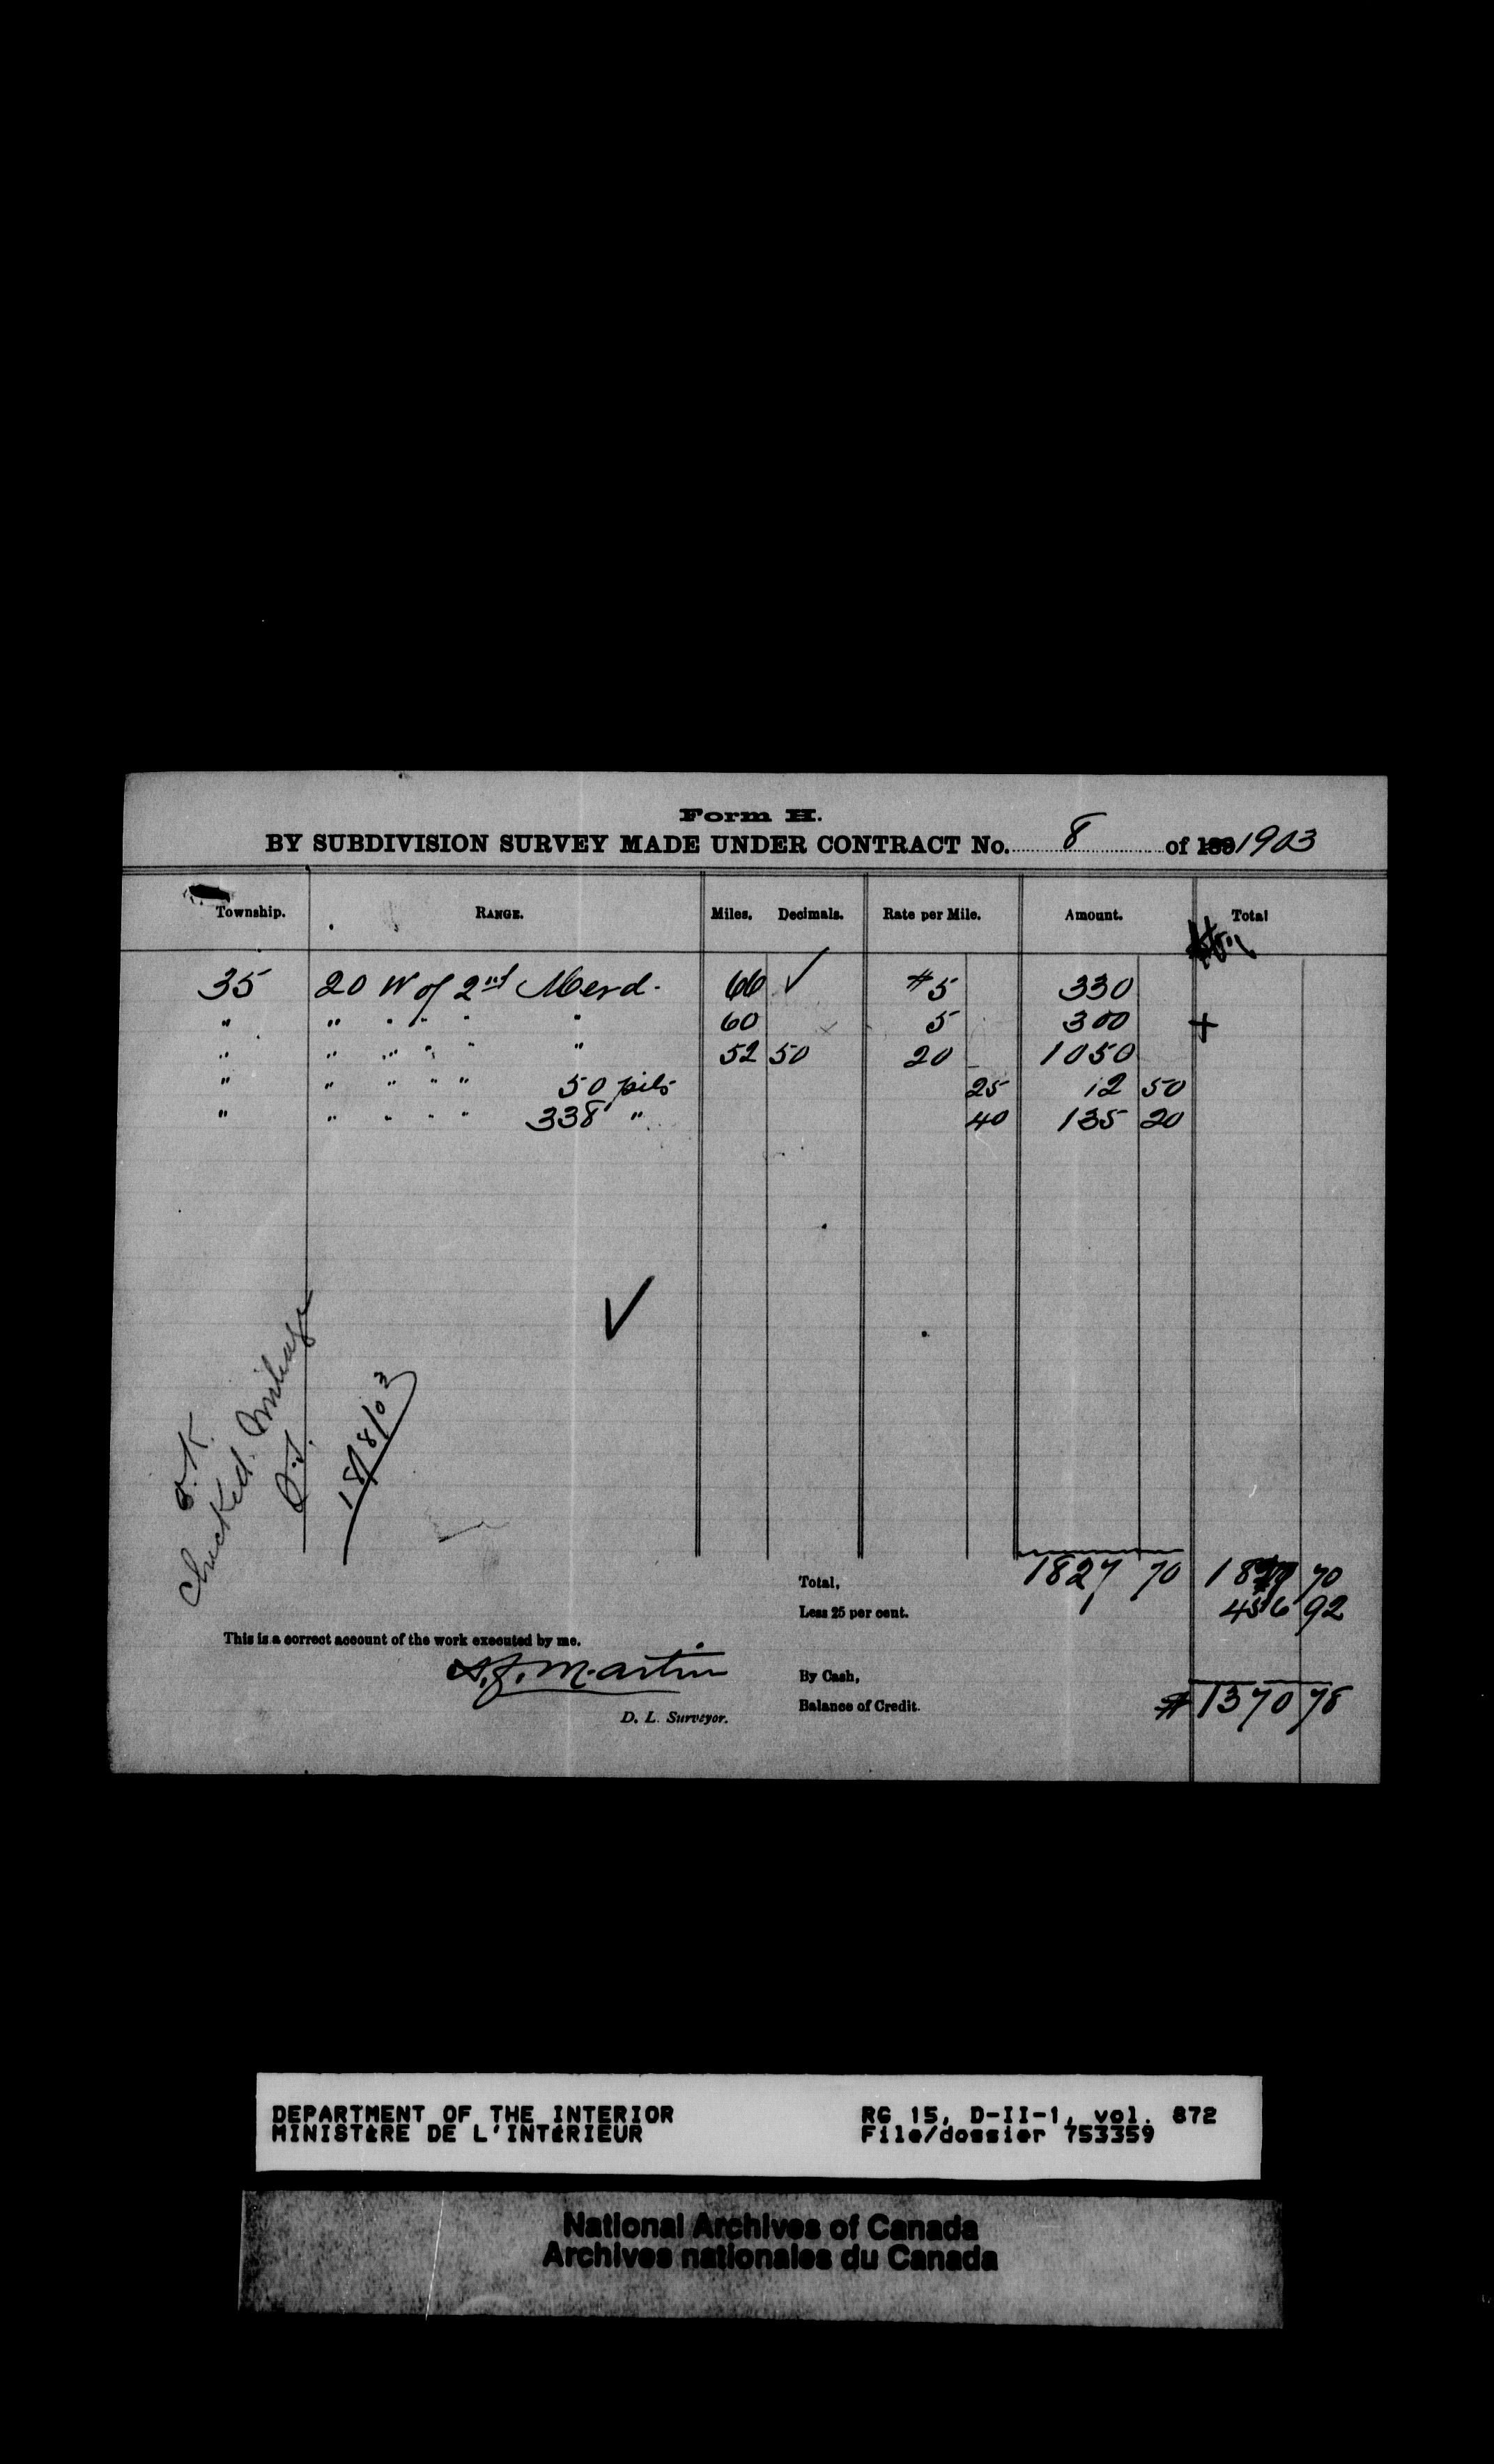 Form H.
BY SUBDIVISION SURVEY MADE UNDER CONTRACT No. 8 of 189 1903
Township. RANGE. Miles. Decimals. Rate per Mile. Amount. Total
35 20 W of 2nd Merd. 66 ✓ $5 330
" " " " " " 60 5 300 +
" " " " " " 52 50 20 1050
" " " " " 50 pits 25 12 50
" " " " " 338 " 40 135 20
✓
O.K.
Checked. Mileage
18/8/03
Total, 1827 70 1827 70
Less 25 per cent. 456 92
This is a correct account of the work executed by me.
By Cash,
Balance of Credit. $ 1370 78
Martin
D. L. Surveyor.
DEPARTMENT OF THE INTERIOR RG 15, D-II-1, vol. 872
MINISTÈRE DE L'INTÉRIEUR File/dossier 753359
National Archives of Canada
Archives nationales du Canada